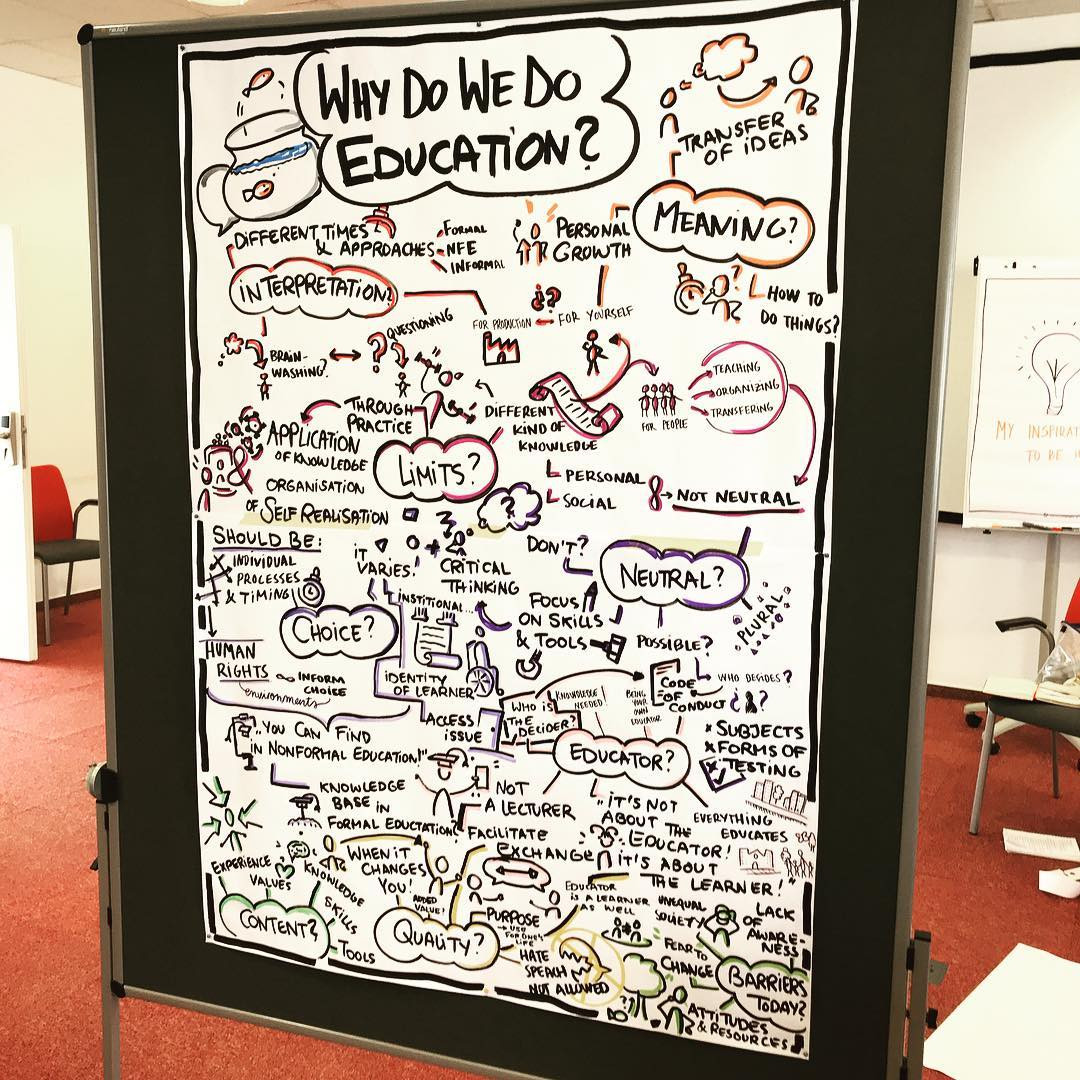 WHY DO WE DO
EDUCATION?
TRANSFER
OF IDEAS
MEANING?
HOW TO
DO THINGS?
PERSONAL
GROWTH
FOR YOURSELF
FOR PRODUCTION
DIFFERENT TIMES
& APPROACHES
FORMAL
NFE
INFORMAL
INTERPRETATION?
BRAIN-
WASHING?
QUESTIONING
THROUGH
PRACTICE
APPLICATION
OF KNOWLEDGE
ORGANISATION
OF SELF REALISATION
LIMITS?
DIFFERENT
KIND OF
KNOWLEDGE
PERSONAL
SOCIAL
FOR PEOPLE
TEACHING
ORGANIZING
TRANSFERING
NOT NEUTRAL
SHOULD BE:
INDIVIDUAL
PROCESSES
& TIMING
HUMAN
RIGHTS
environments
CHOICE?
INFORM
CHOICE
IT
VARIES!
CRITICAL
THINKING
INSTITIONAL...
IDENTITY
OF LEARNER
ACCESS
ISSUE
DON'T?
NEUTRAL?
FOCUS
ON SKILLS
& TOOLS
POSSIBLE?
PLURAL
WHO DECIDES?
CODE
OF
CONDUCT
WHO IS
THE
DECIDER?
KNOWLEDGE
NEEDED!
BEING
YOUR
OWN
EDUCATOR
EDUCATOR?
SUBJECTS
FORMS OF
TESTING
"YOU CAN FIND
IN NONFORMAL EDUCATION!"
KNOWLEDGE
BASE IN
FORMAL EDUCTATION?
NOT
A LECTURER
FACILITATE
EXCHANGE
"IT'S NOT
ABOUT THE
EDUCATOR!
IT'S ABOUT
THE LEARNER!"
EVERYTHING
EDUCATES
EDUCATOR
IS A LEARNER
AS WELL
EXPERIENCE
VALUES
KNOWLEDGE
SKILLS
TOOLS
CONTENT?
WHEN IT
CHANGES
YOU!
ADDED
VALUE?
QUALITY?
PURPOSE
HATE
SPEACH
NOT ALLOWED
UNEQUAL
SOCIETY
LACK
OF
AWARE-
NESS
FEAR TO
CHANGE
BARRIERS
TODAY?
ATTITUDES
& RESOURCES
MY INSPIRAT
TO BE